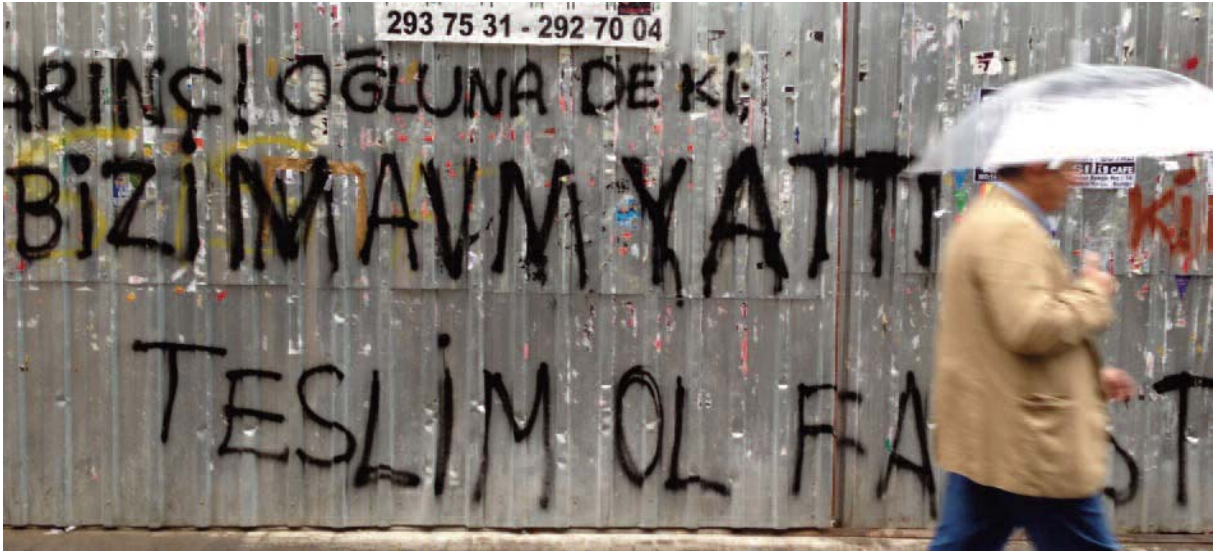 293 75 31 - 292 70 04
ARINÇ! OĞLUNA DE Kİ;
BİZİM AVM YATTI
Kİ
TESLİM OL
CAFE